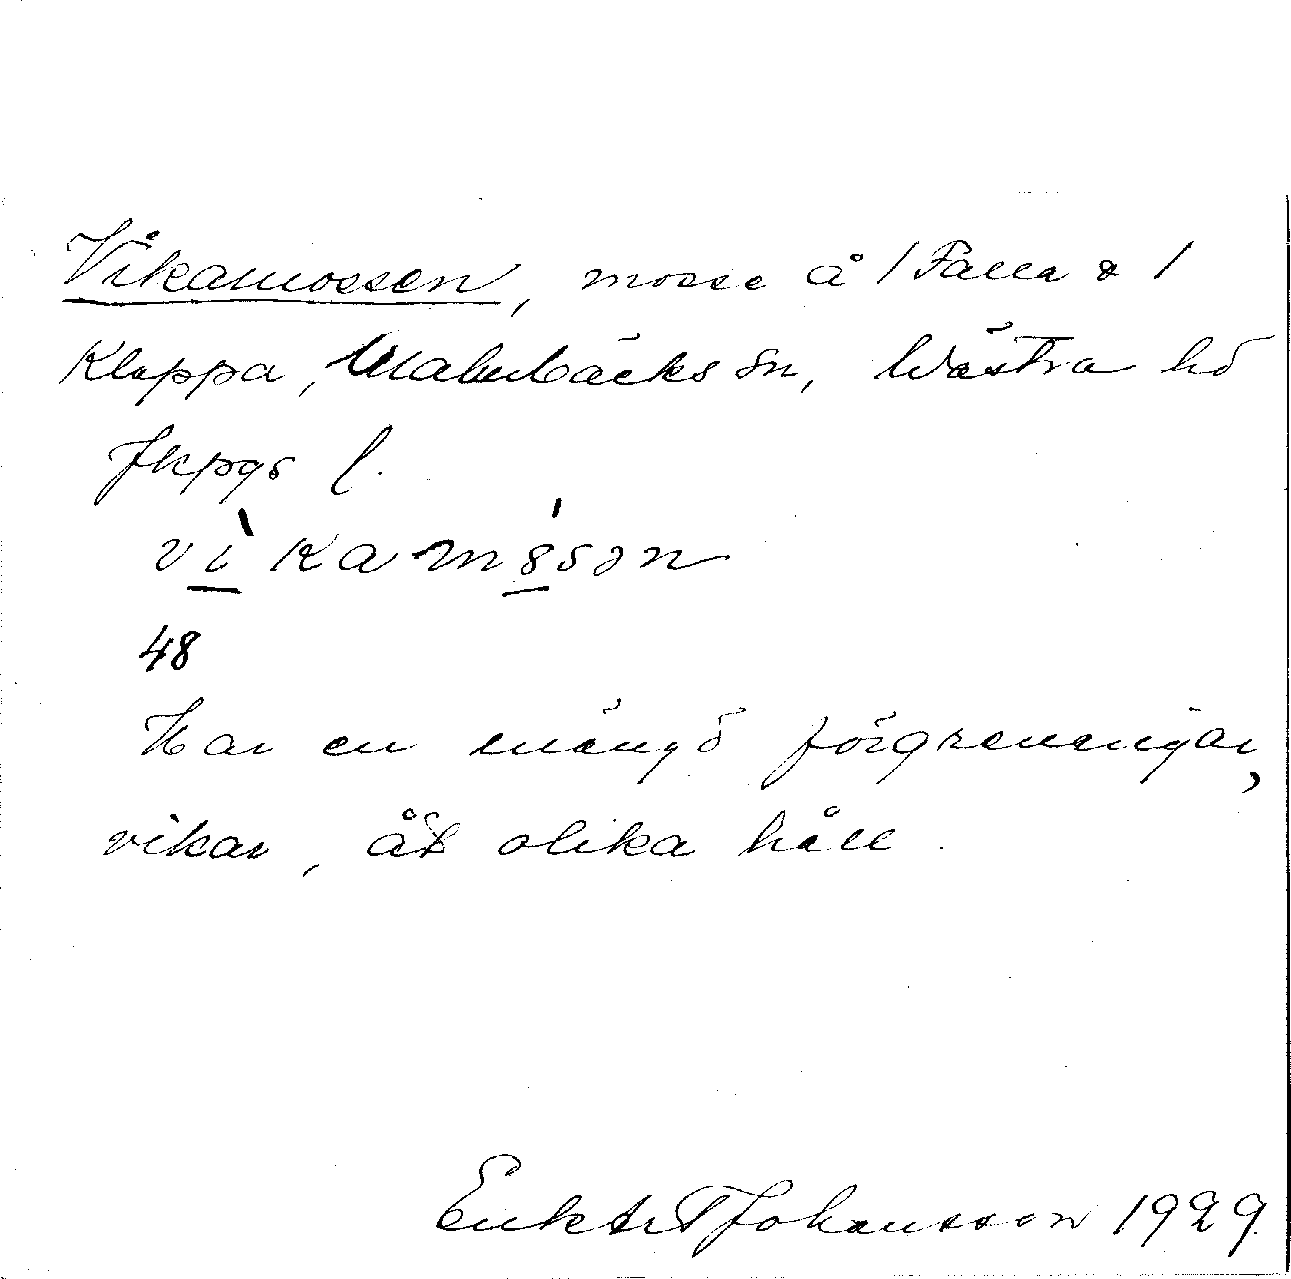 Vikamossen, mosse å 1 Falla & 1
Kloppa, Malmbäcks sn, Västra hd
Jkpgs l.
vìkamósən
48
Har en mängd förgreningar,
vikar, åt olika håll.
Enl kt T Johansson 1929.